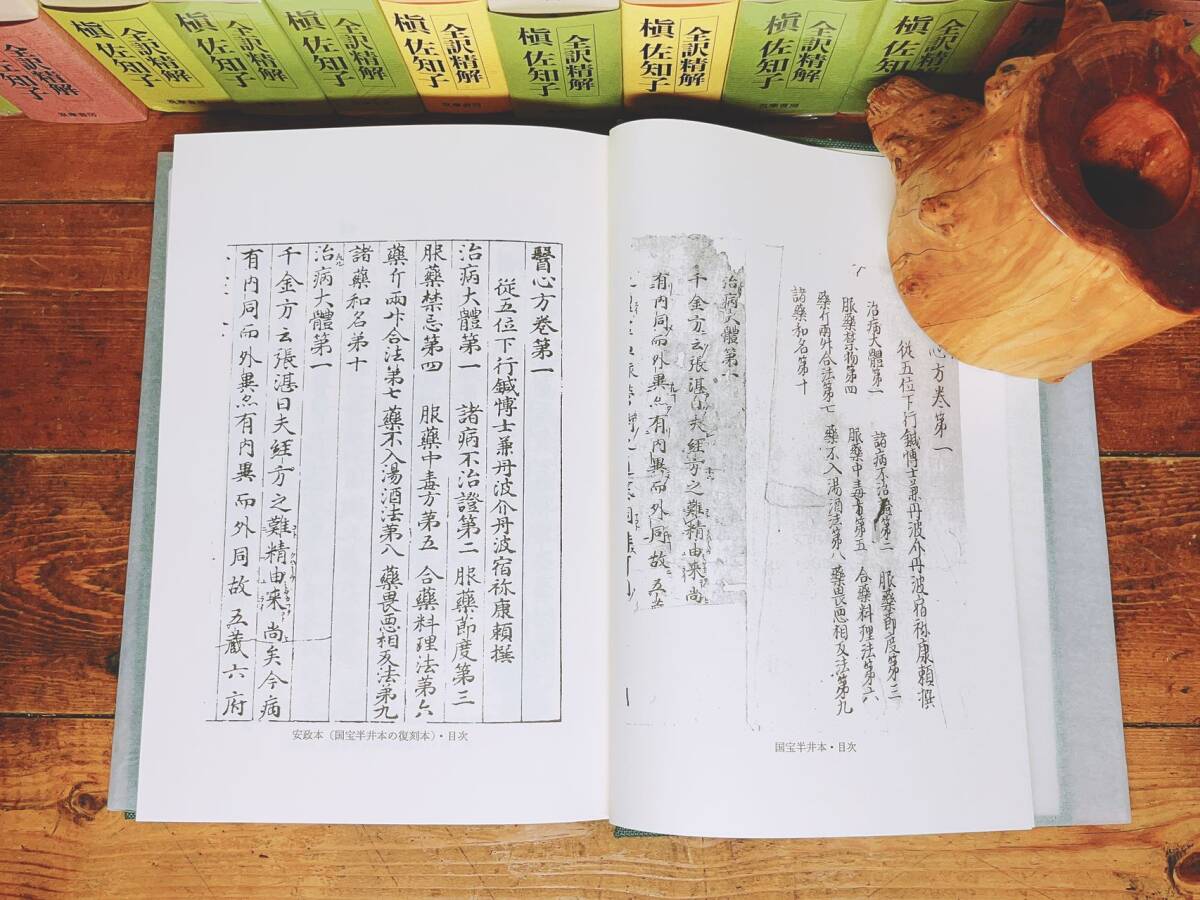 全訳精解
佐知子
筑摩書房
全訳精解
槇 佐知子
筑摩書房
全訳精解
槇 佐知子
全訳精解
槇 佐知子
全訳精解
槇 佐知子
筑摩書房
全訳精解
槇 佐知子
全訳精解
槇 佐知子
筑摩書房
全訳精解
槇 佐知子
筑摩書房
全訳精解
槇 佐知子
心方巻第一
従五位下行鍼博士兼丹波介丹波宿祢康頼撰
治病大體第一 諸病不治證第二 服藥節度第三
服藥禁物第四 服藥中毒方第五 合藥料理法第六
藥斤兩升合法第七 藥不入湯酒法第八 藥畏惡相反法第九
諸藥和名第十
治病大體第一
千金方云張湛曰夫経方之難精由来尚
有内同而外異亦有内異而外同故五蔵
国宝半井本・目次
醫心方巻第一
従五位下行鍼博士兼丹波介丹波宿祢康頼撰
治病大體第一 諸病不治證第二 服藥節度第三
服藥禁忌第四 服藥中毒方第五 合藥料理法第六
藥斤兩升合法第七 藥不入湯酒法第八 藥畏惡相反法第九
諸藥和名第十
治病大體第一
千金方云張湛曰夫経方之難精由来尚矣今病
有内同而外異亦有内異而外同故五蔵六府
安政本（国宝半井本の復刻本）・目次